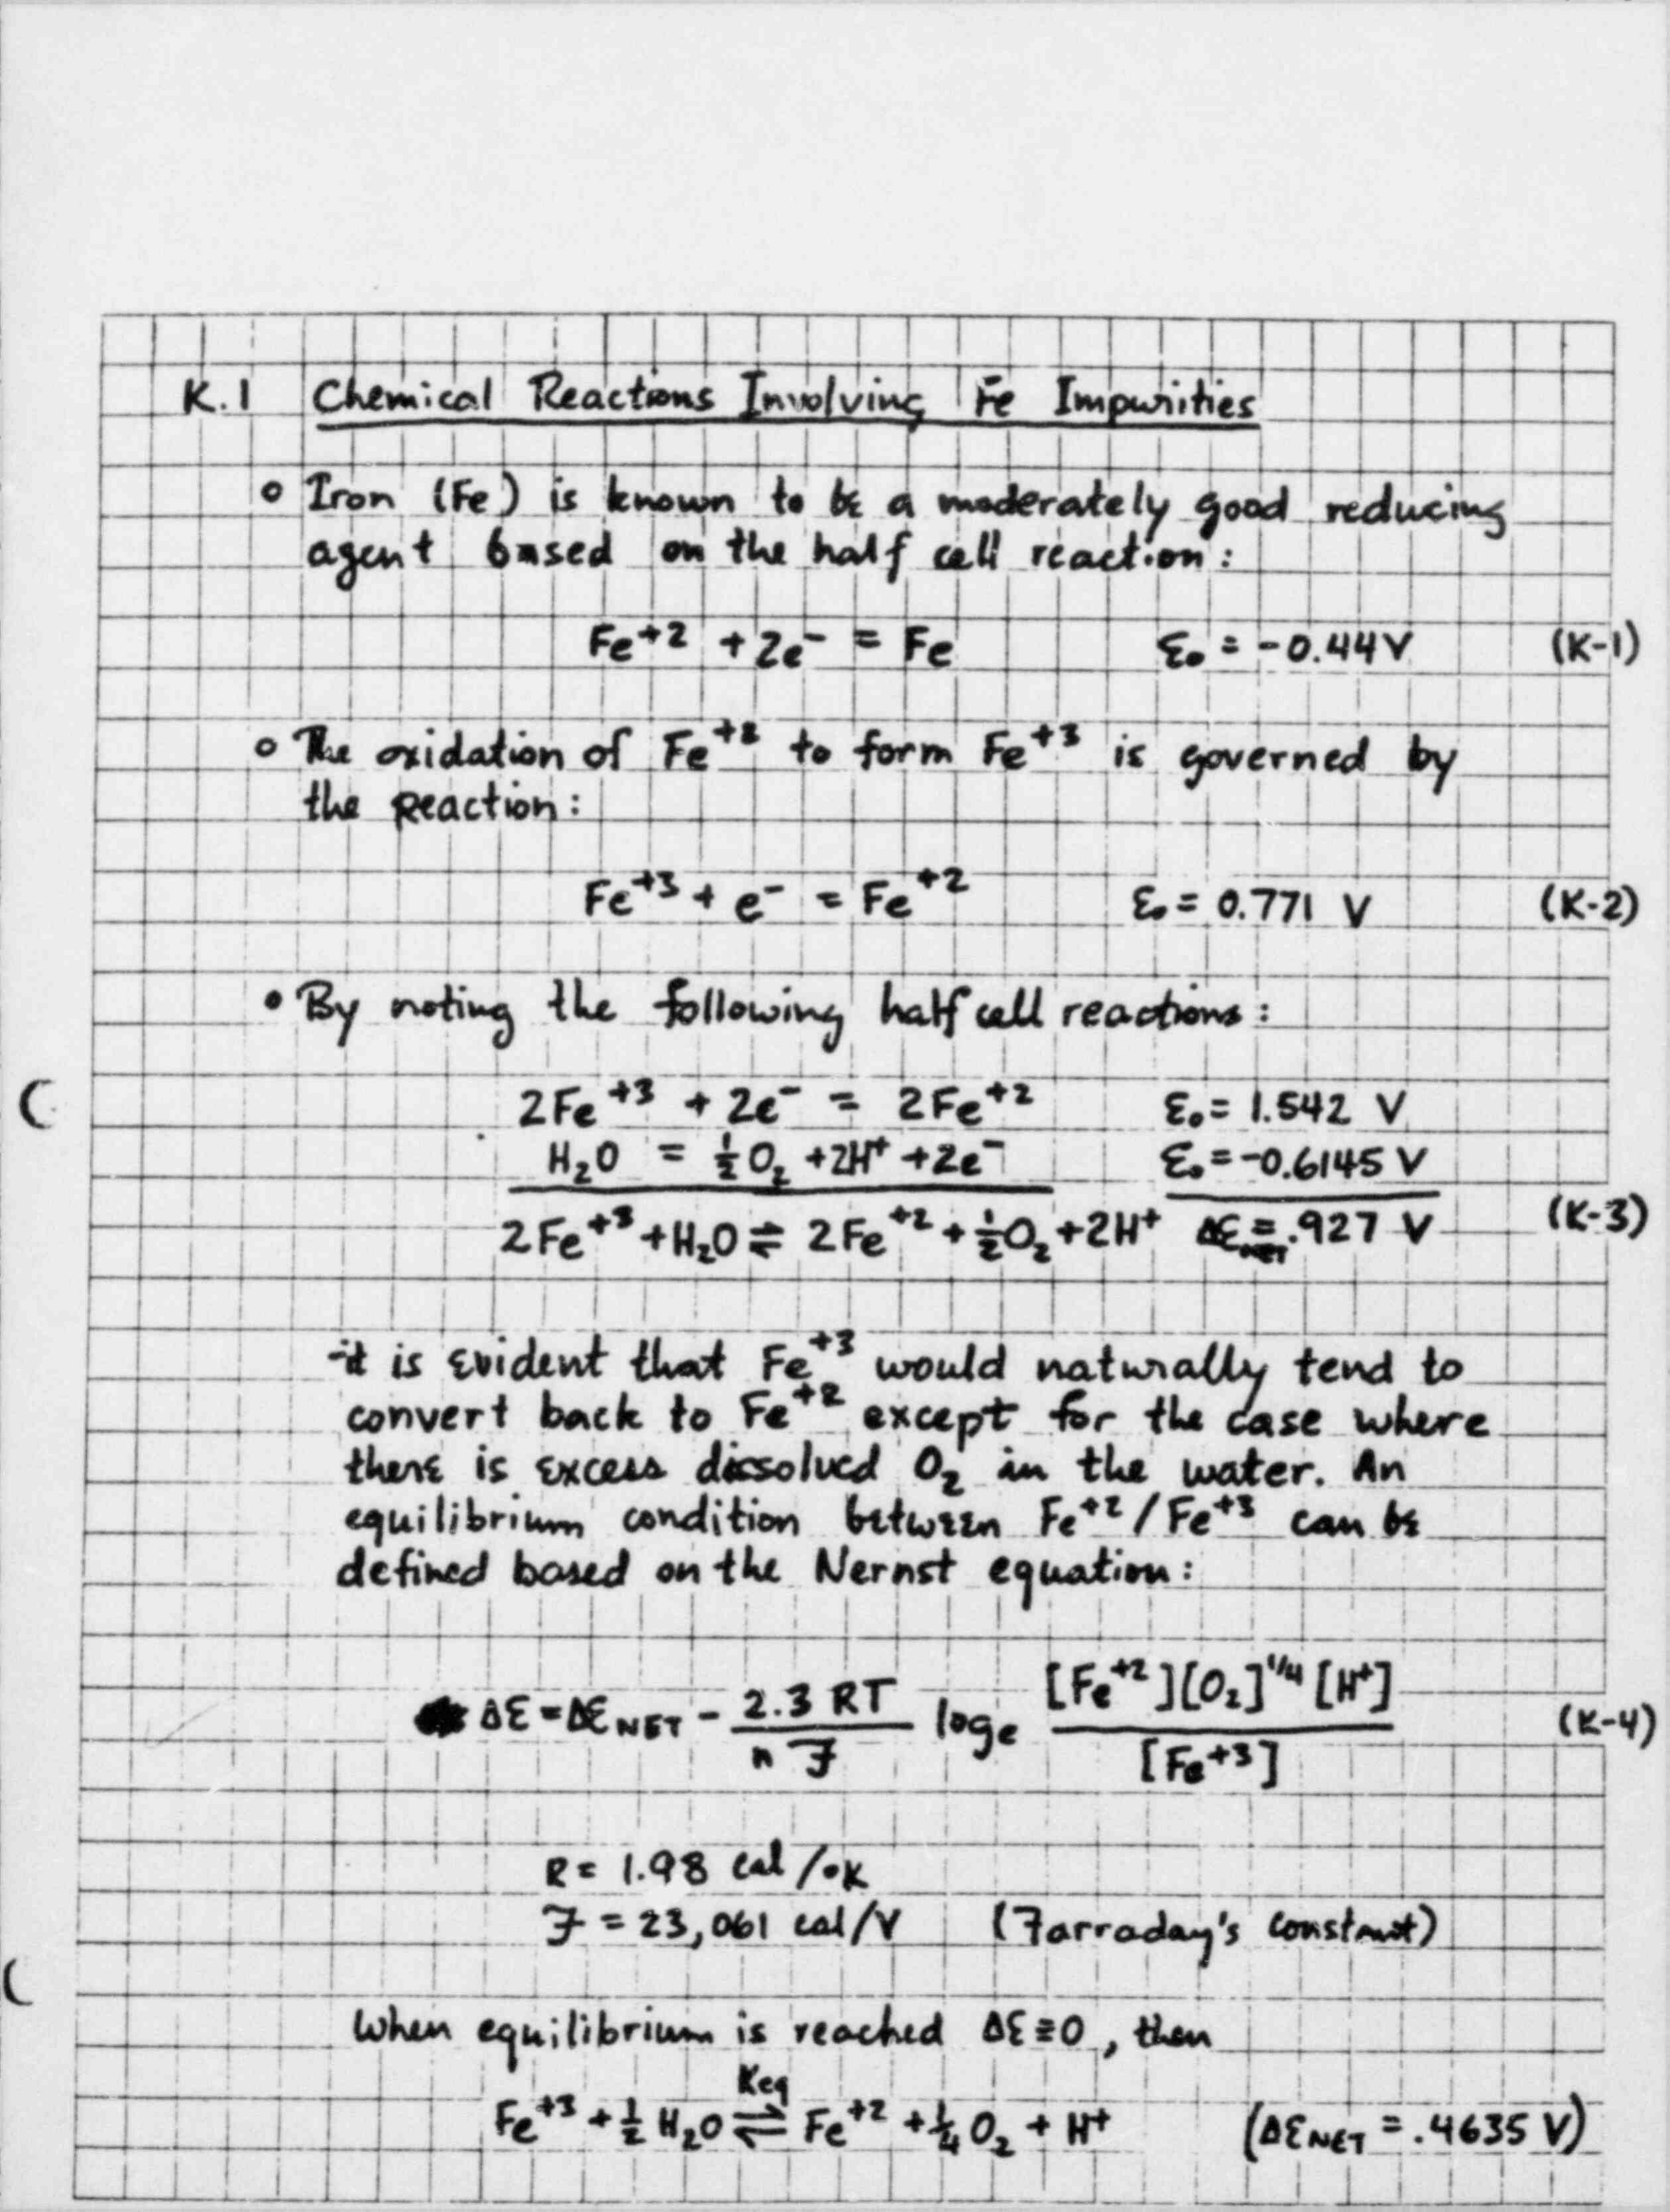 K.1 Chemical Reactions Involving Fe Impurities
o Iron (Fe) is known to be a moderately good reducing
agent based on the half cell reaction:
Fe+2 + 2e- = Fe ε₀ = -0.44V (K-1)
o The oxidation of Fe+2 to form Fe+3 is governed by
the reaction:
Fe+3 + e- = Fe+2 ε₀ = 0.771 V (K-2)
• By noting the following half cell reactions:
2Fe+3 + 2e- = 2Fe+2 ε₀ = 1.542 V
H₂O = ½O₂ + 2H+ + 2e- ε₀ = -0.6145 V
2Fe+3 + H₂O ⇌ 2Fe+2 + ½O₂ + 2H+ Δε NET = .927 V (K-3)
-it is evident that Fe+3 would naturally tend to
convert back to Fe+2 except for the case where
there is excess dissolved O₂ in the water. An
equilibrium condition between Fe+2/Fe+3 can be
defined based on the Nernst equation:
Δε = Δε NET - 2.3 RT / n F logₑ [Fe+2][O₂]^1/4 [H+] / [Fe+3] (K-4)
R = 1.98 cal/°K
F = 23,061 cal/V (Farraday's constant)
When equilibrium is reached Δε ≡ 0, then
Keq
Fe+3 + ½ H₂O ⇌ Fe+2 + ¼ O₂ + H+ (Δε NET = .4635 V)